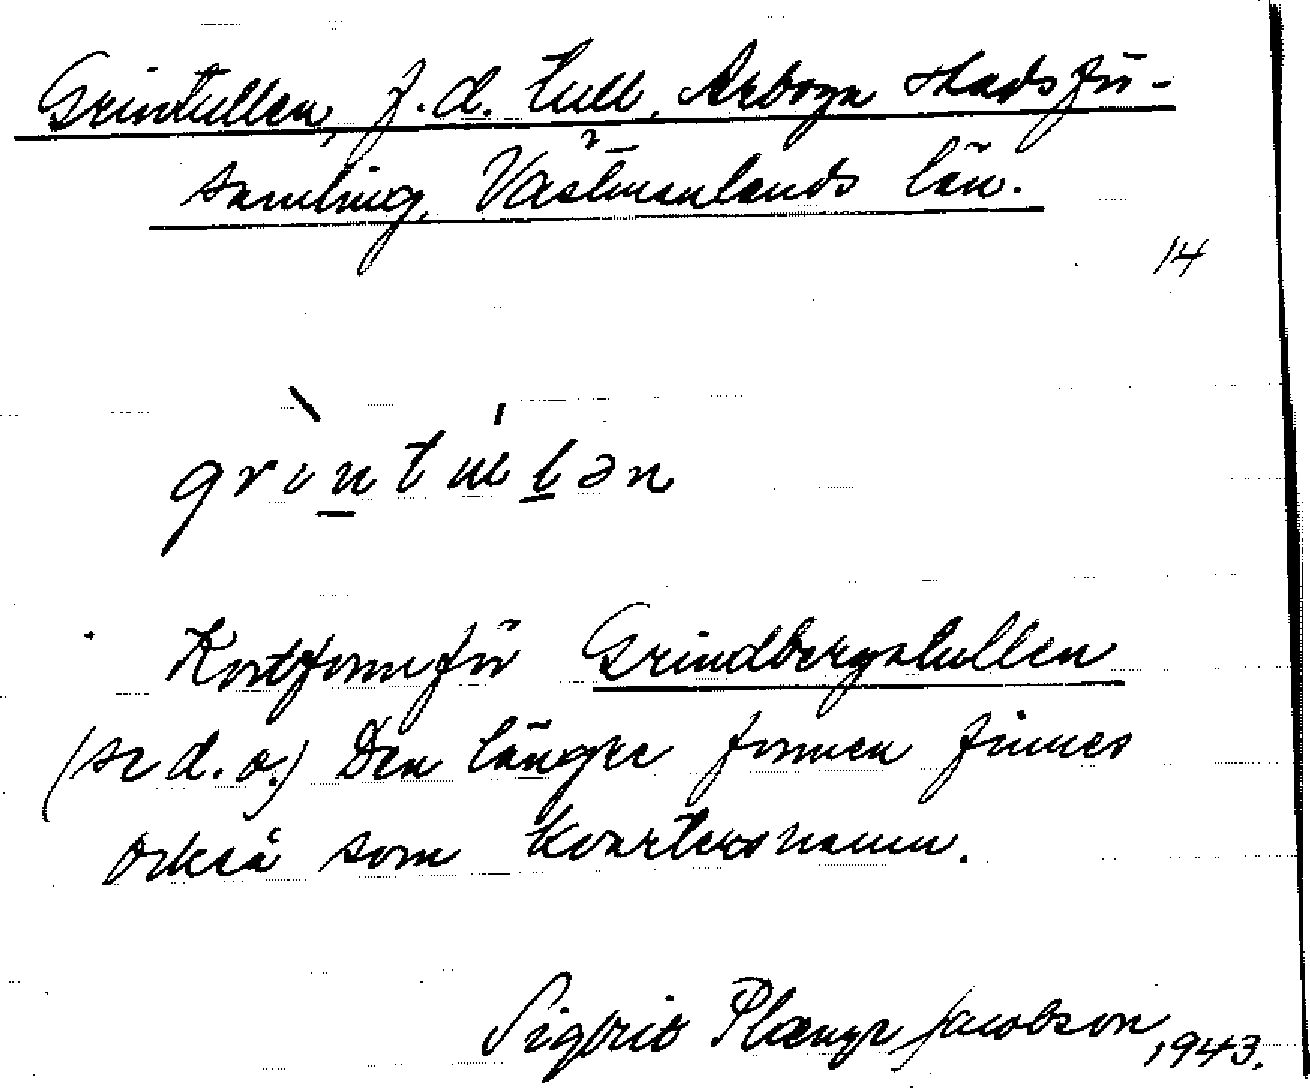 Grintullen, f.d. tull, Arboga stadsför-
samling, Västmanlands län.
14
grìntúllən
Kortform för Grindbergatullen
(se d.o.) Den längre formen finnes
också som kvartersnamn.
Sigfrid Plænge Jacobson, 1943.